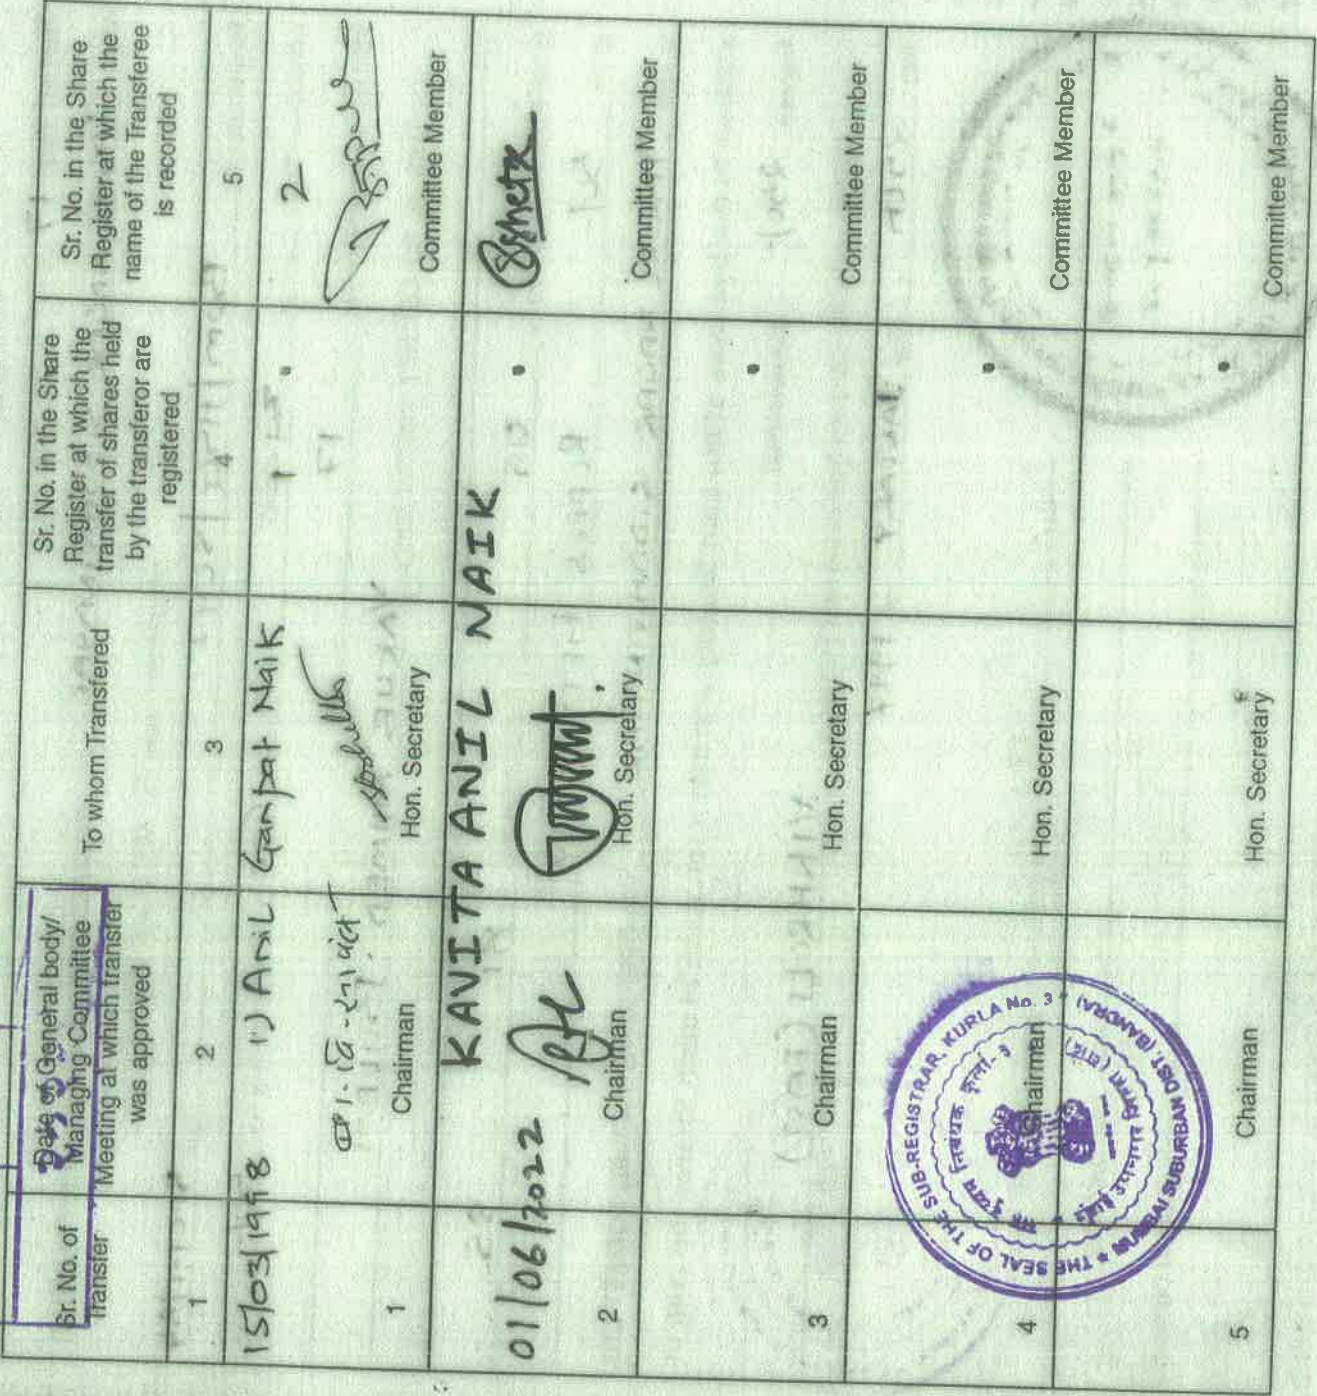 Sr. No. of
Transfer
Date of General body/
Managing Committee
Meeting at which transfer
was approved
To whom Transfered
Sr. No. in the Share
Register at which the
transfer of shares held
by the transferor are
registered
Sr. No. in the Share
Register at which the
name of the Transferee
is recorded
1
2
3
4
5
15/03/1998
1) Anil Ganpat Naik
1
2
1
Chairman
Hon. Secretary
Committee Member
01/06/2022
KAVITA ANIL NAIK
2
Chairman
Hon. Secretary
Committee Member
3
Chairman
Hon. Secretary
Committee Member
4
Chairman
Hon. Secretary
Committee Member
5
Chairman
Hon. Secretary
Committee Member
THE SEAL OF THE SUB-REGISTRAR, KURLA No. 3
MUMBAI SUBURBAN DIST. (BANDRA)
सह दुय्यम निबंधक कुर्ला-३